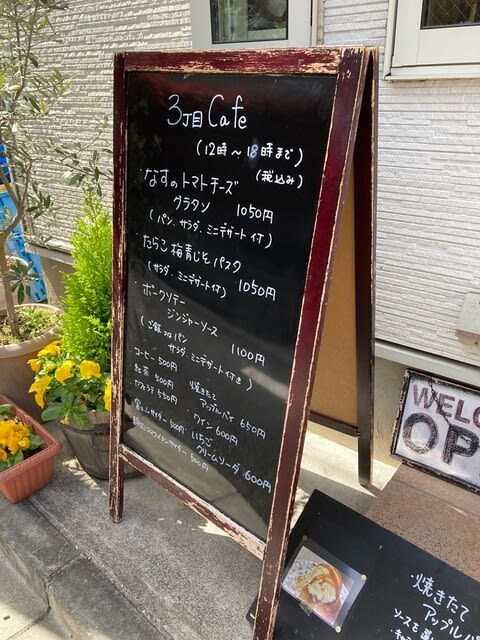 3丁目 Cafe
(12時〜18時まで)
(税込み)
・なすのトマトチーズ
グラタン 1050円
(パン、サラダ、ミニデザート付)
・たらこ梅青じそパスタ
(サラダ、ミニデザート付) 1050円
・ポークソテー
ジンジャーソース 1100円
(ご飯orパン
サラダ、ミニデザート付き)
コーヒー 500円
紅茶 500円
カフェラテ 550円
焼きたて
アップルパイ 650円
・ワイン 600円
サイダー 500円
いちご
クリームソーダ 600円
サイダー
500円
WELC
OP
・焼きたて
アップルパ
ソースを